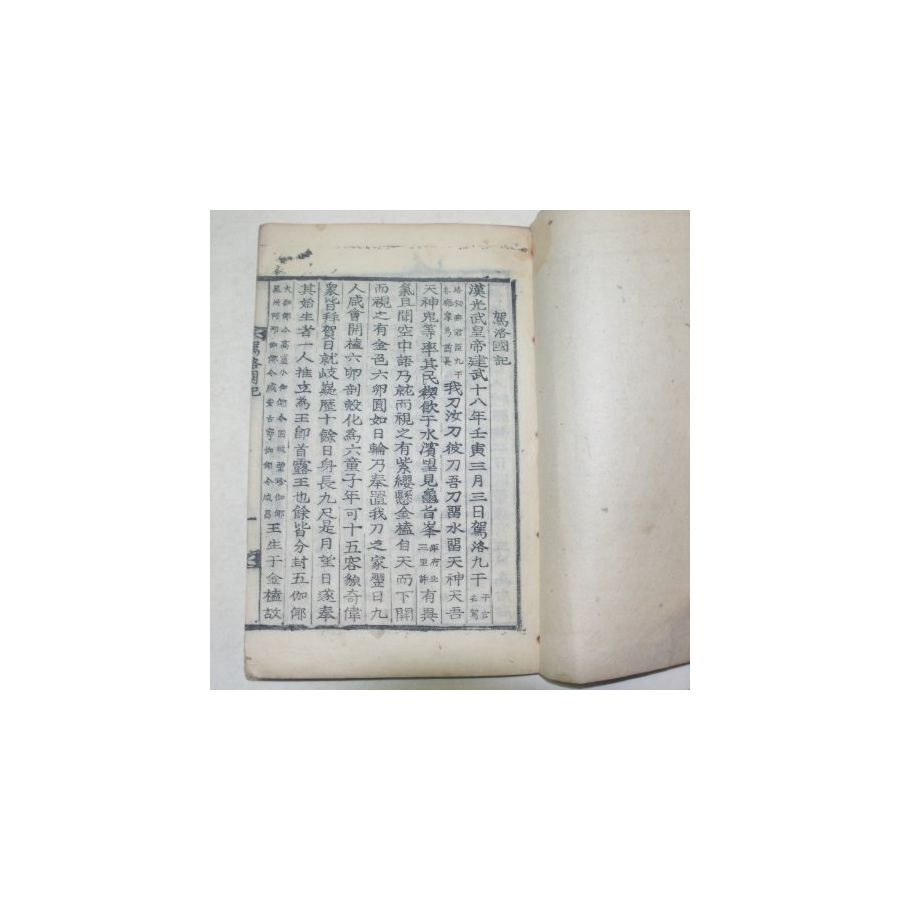 駕洛國記
漢光武皇帝建武十八年壬寅三月三日駕洛九干
我刀汝刀彼刀吾刀留水留天神天吾
天神鬼等率其民禊飲于水濱望見龜旨峯 有異
氣且聞空中語乃就而視之有紫纓懸金榼自天而下開
而視之有金色六卵圓如日輪乃奉置我刀之家翌日九
人咸會開榼六卵剖殼化為六童子年可十五容貌奇偉
衆皆拜賀日就岐嶷歷十餘日身長九尺是月望日遂奉
其始生者一人推立為王即首露王也餘皆分封五伽倻
王生于金榼故
駕洛國記
一